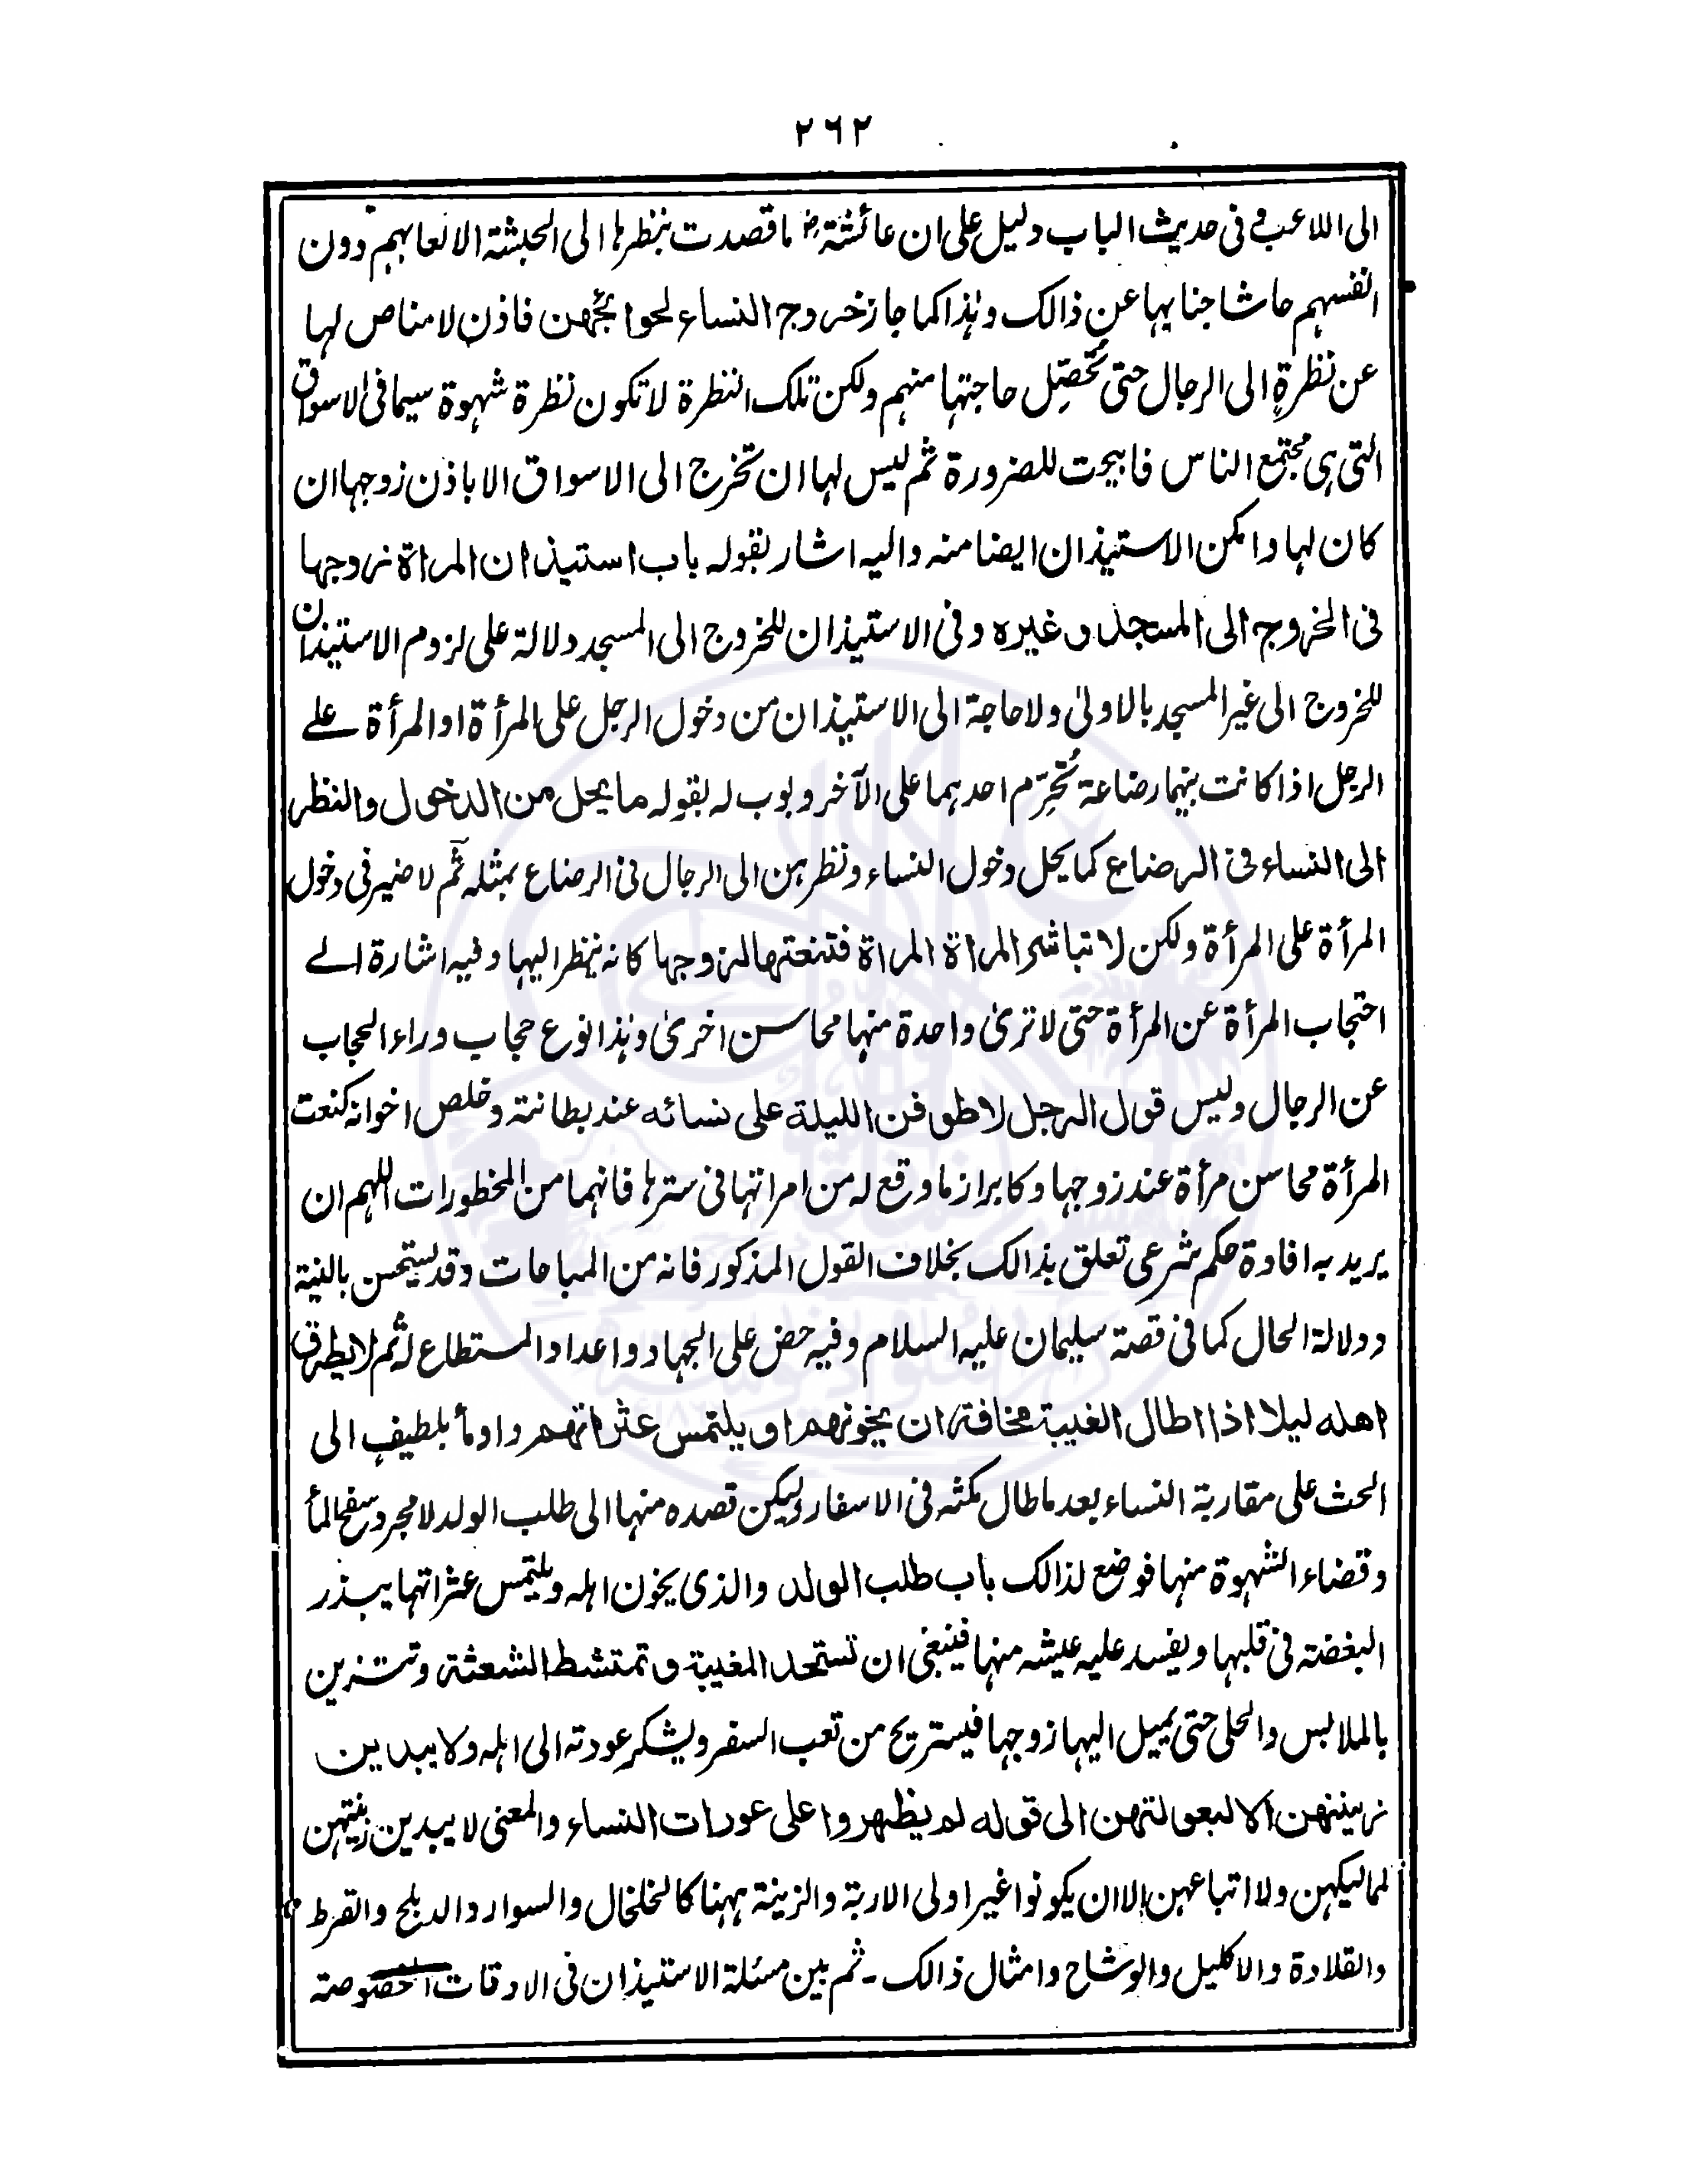 ٢٦٢
الى اللاعب و فى حديث الباب دليل على ان عائشة رض ما قصدت بنظرها الى الحبشة الا لعابهم دون
انفسهم حاشا جنابها عن ذالك و هذا كما جاز خروج النساء لحوائجهن فاذن لا مناص لها
عن نظرةٍ الى الرجال حتى تُحصِّل حاجتها منهم ولكن تلك النظرة لا تكون نظرة شهوة سيما فى الاسواق
التى هى مجتمع الناس فابيحت للضرورة ثم ليس لها ان تخرج الى الاسواق الا باذن زوجها ان
كان لها و امكن الاستيذان ايضا منه و اليه اشار بقوله باب استيذان المراة زوجها
فى الخروج الى المسجد و غيره و فى الاستيذان للخروج الى المسجد دلالة على لزوم الاستيذان
للخروج الى غير المسجد بالاولىٰ ولا حاجة الى الاستيذان من دخول الرجل على المرأة او المرأة علے
الرجل اذا كانت بينهما رضاعة تُحرِّم احدهما على الآخر و بوب له بقوله ما يحل من الدخول والنظر
الى النساء فى الرضاع كما يحل دخول النساء و نظرهن الى الرجال فى الرضاع بمثله ثم لا ضير فى دخول
المرأة على المرأة ولكن لا تباشر المراة المراة فتنعتها لزوجها كانه ينظر اليها و فيه اشارة الے
احتجاب المرأة عن المرأة حتى لا ترىٰ واحدة منها محاسن اخرىٰ و هذا نوع حجاب وراء الحجاب
عن الرجال وليس قول الرجل لاطوفن الليلة على نسائه عند بطانته و خلص اخوانه كنعت
المرأة محاسن مرأة عند زوجها و كابراز ما وقع له من امراتها فى سترها فانهما من المحظورات اللهم ان
يريد به افادة حكم شرعى تعلق بذالك بخلاف القول المذكور فانه من المباحات و قد يستحسن بالنية
و دلالة الحال كما فى قصة سليمان عليه السلام و فيه حض على الجهاد و اعداد المستطاع له ثم لا يطرق
اهله ليلا اذا اطال الغيبة مخافة ان يخونهم او يلتمس عثراتهم و اومأ بلطيفٍ الى
الحث على مقاربة النساء بعد ما طال مكثه فى الاسفار وليكن قصده منها الى طلب الولد لا مجرد سفح الماء
و قضاء الشهوة منها فوضع لذالك باب طلب الولد والذى يخون اهله و يلتمس عثراتها يبذر
البغضة فى قلبها و يفسد عليه عيشه منها فينبغى ان تستحد المغيبة و تمتشط الشعثة و تتزين
بالملابس والحلى حتى يميل اليها زوجها فيستريح من تعب السفر و يشكر عودته الى اهله ولا يبدين
زينتهن الا لبعولتهن الى قوله لم يظهروا على عورات النساء والمعنى لا يبدين زينتهن
لمماليكهن ولا اتباعهن الا ان يكونوا غير اولى الاربة والزينة ههنا كالخلخال والسوار والدملج والقرط
والقلادة والاكليل والوشاح وامثال ذالك ـ ثم بين مسئلة الاستيذان فى الاوقات المخصوصة